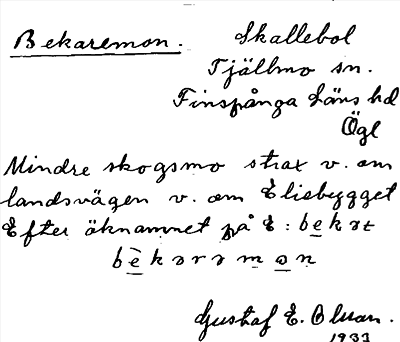 Bekaremon. Skallebol
Tjällmo sn.
Finspånga läns hd
Ögl
Mindre skogsmo strax v. om
landsvägen v. om Eliebygget
Efter öknamnet på E: bekat
bèkarəmon
Gustaf E. Oluan.
1933